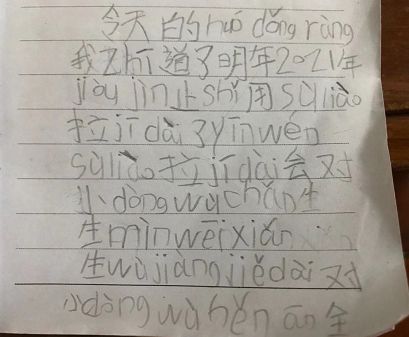 今天的huó dǒng ràng
我zhī道了明年2021年
jiòu jìn止shǐ用sùliào
拉jī dài了yīnwén
sùliào拉jīdài会对
小dòngwùchǎn生
生mìnwēixiǎn
生wùjiàngjiědài对
小dòngwùhěnān全